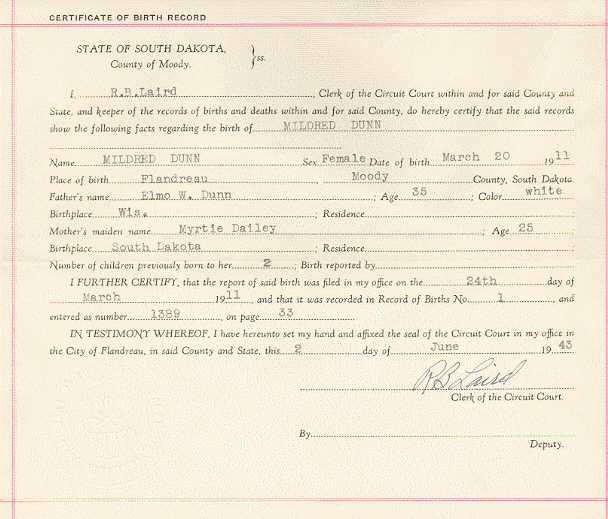 CERTIFICATE OF BIRTH RECORD
STATE OF SOUTH DAKOTA,
County of Moody. }ss.
I, R.B.Laird, Clerk of the Circuit Court within and for said County and
State, and keeper of the records of births and deaths within and for said County, do hereby certify that the said records
show the following facts regarding the birth of MILDRED DUNN
Name MILDRED DUNN Sex Female Date of birth March 20 1911
Place of birth Flandreau, Moody County, South Dakota
Father's name Elmo W. Dunn; Age 35; Color white
Birthplace Wis.; Residence;
Mother's maiden name Myrtie Dailey; Age 25;
Birthplace South Dakota; Residence
Number of children previously born to her 2; Birth reported by
I FURTHER CERTIFY, that the report of said birth was filed in my office on the 24th day of
March 1911, and that it was recorded in Record of Births No. 1, and
entered as number 1389, on page 33
IN TESTIMONY WHEREOF, I have hereunto set my hand and affixed the seal of the Circuit Court in my office in
the City of Flandreau, in said County and State, this 2 day of June 1943
RB Laird
Clerk of the Circuit Court.
By
Deputy.